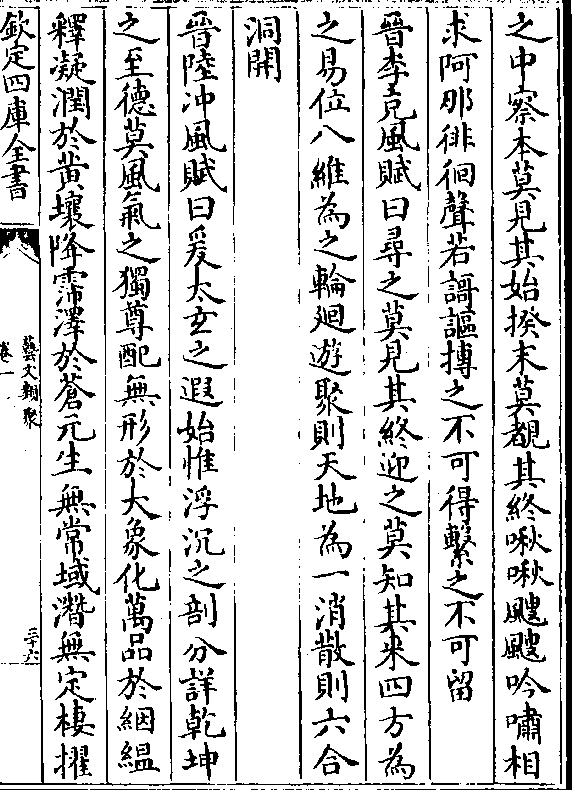 之中察本莫見其始揆末莫覩其終啾啾颼颼吟嘯相
求阿那徘徊聲若謌謳摶之不可得繫之不可留
晉李克風賦曰尋之莫見其終迎之莫知其来四方為
之易位八維為之輪迴遊聚則天地為一消散則六合
洞開
晉陸冲風賦曰爰太玄之遐始惟浮沉之剖分詳乾坤
之至德莫風氣之獨尊配無形於大象化萬品於絪縕
釋凝潤於黄壤降霈澤於蒼元生無常域濳無定棲擢
欽定四庫全書
藝文類聚
卷一
三十六